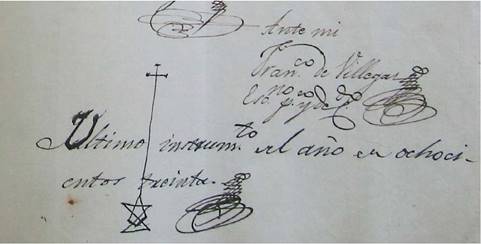 Ante mi
Fran.co de Villegas
Esc.no pco y de
Ultimo instrum.to el año en ochoci-
entos treinta.